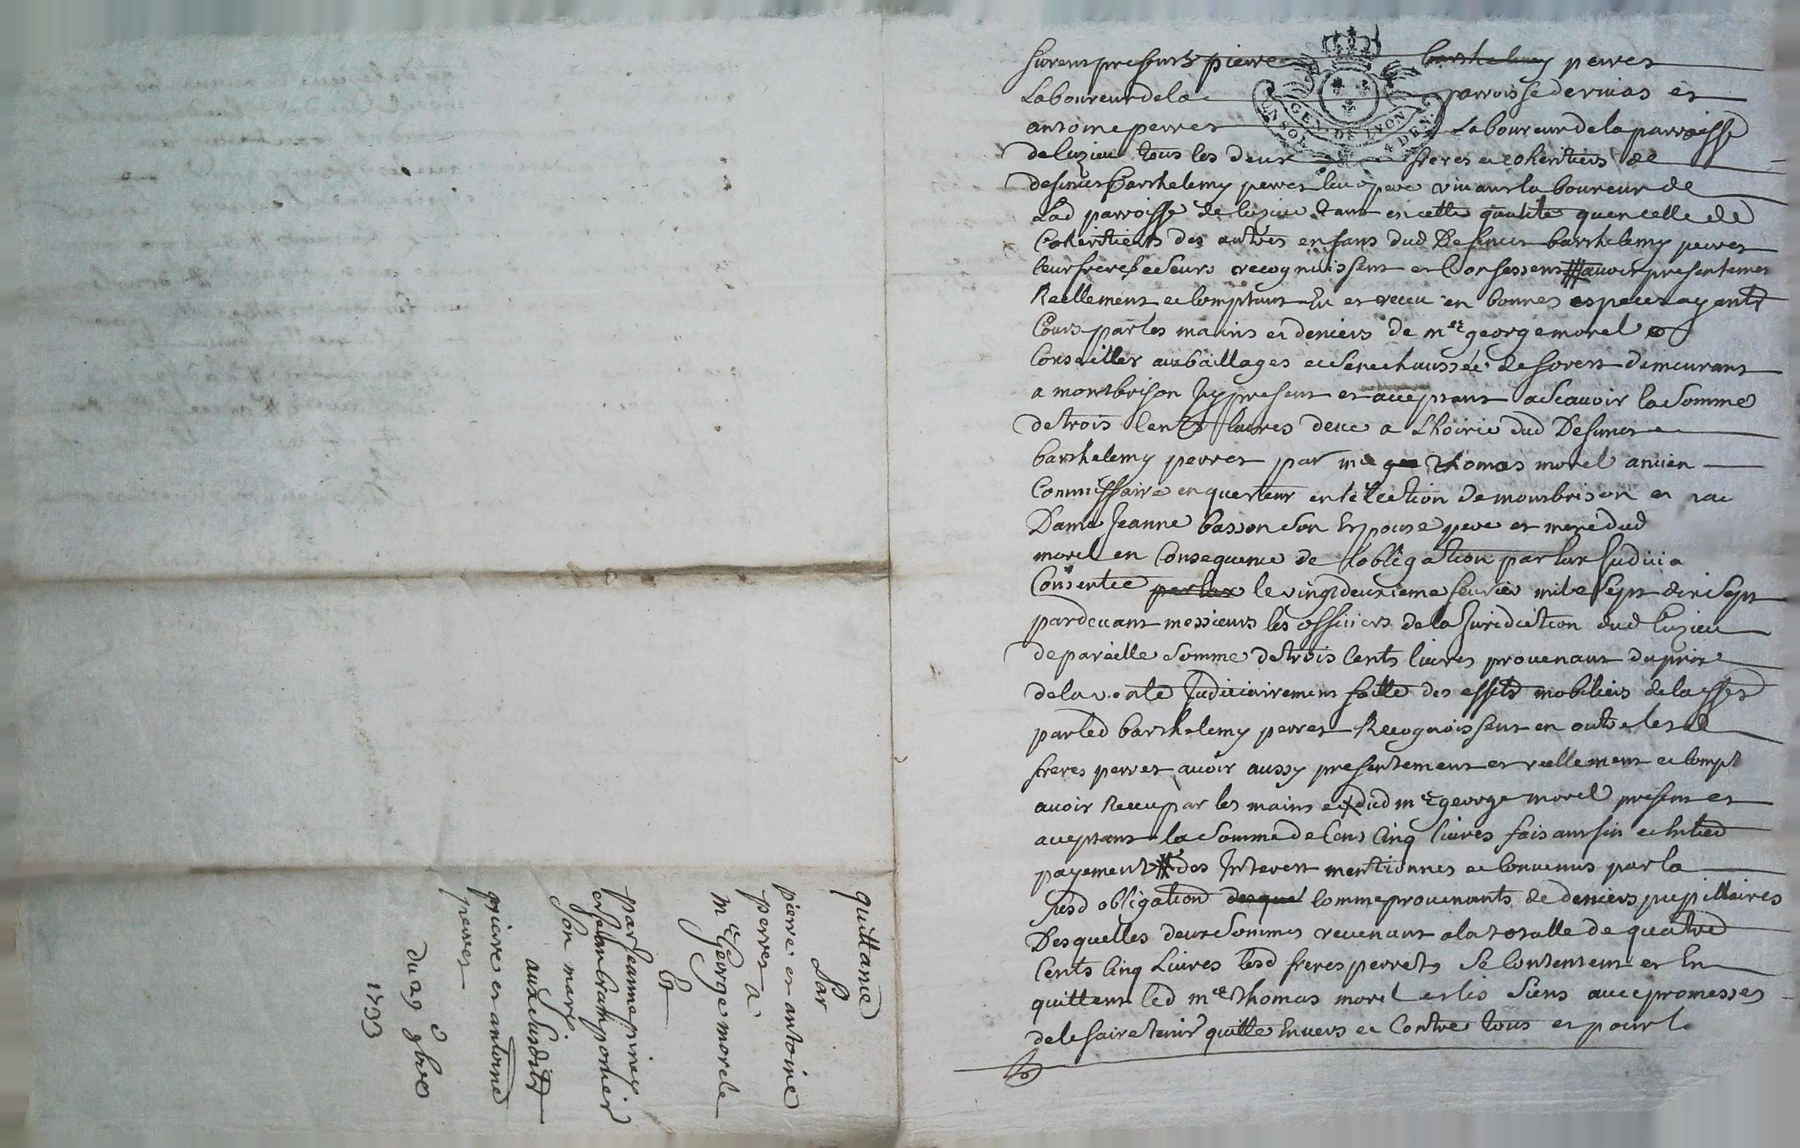 furent presents pierre barthelemy perret
Laboureur de la parroisse dervias et
antoine perret Laboureur de la parroisse
de luzieu tous les deux freres et coheritiers de
defunct Barthelemy perret leur pere vivant laboureur de
Lad parroisse de luzieu tant en cette qualité quen celle de
Coheritiers des autres enfans dud Defunct barthelemy perret
leur freres et seurs recognoissent et Confessent avoir presentement
Reellement et Comptant Eu et receu en bonnes especes ayants
Cours par les mains et deniers de mre george morel
Conseiller au baillages et senechaussée de forest demeurant
a montbrison Icy present et acceptant a scavoir la somme
de trois Cents livres deue a Lhoirie dud Defunct
barthelemy perret par me thomas morel ancien
Commissaire enquesteur en lélection de montbrison et
Dame Jeanne basson son Espouse pere et mere dud
morel en Consequence de lobligation par eux Judicia
Consentie par eux le vingtdeuxieme fevrier mil sept dix sept
pardevant messieurs les officiers de la Juridiction dud luzieu
de pareille somme de trois Cents livres provenant du prix
de la vente Judiciairement faitte des effets mobiliers delaisses
par led barthelemy perret Recognoissent en outre lesd
freres perret avoir aussy presentement et reellement et Compt
avoir Receu par les mains dud mre george morel present et
acceptant la somme de Cent Cinq livres faisant fin et Entied
payement des Interest mentionnes et Convenus par la
susd obligation desque Comme provenants de deniers pupillaires
Desquelles deux sommes revenant a la totalle de quatre
Cents Cinq Livres lesd freres perrets se Contentent et En
quittent led mre thomas morel et les siens avec promesses
de le faire tenir quitte Envers et Contre tous et pour l
GEN DE LYON
quittance
par
pierre et antoine
perret a
Mre George morel
Et
par Jeanne piney
son mary
aux susdits
pierre et antoine
perret
du 29 9bre
1733